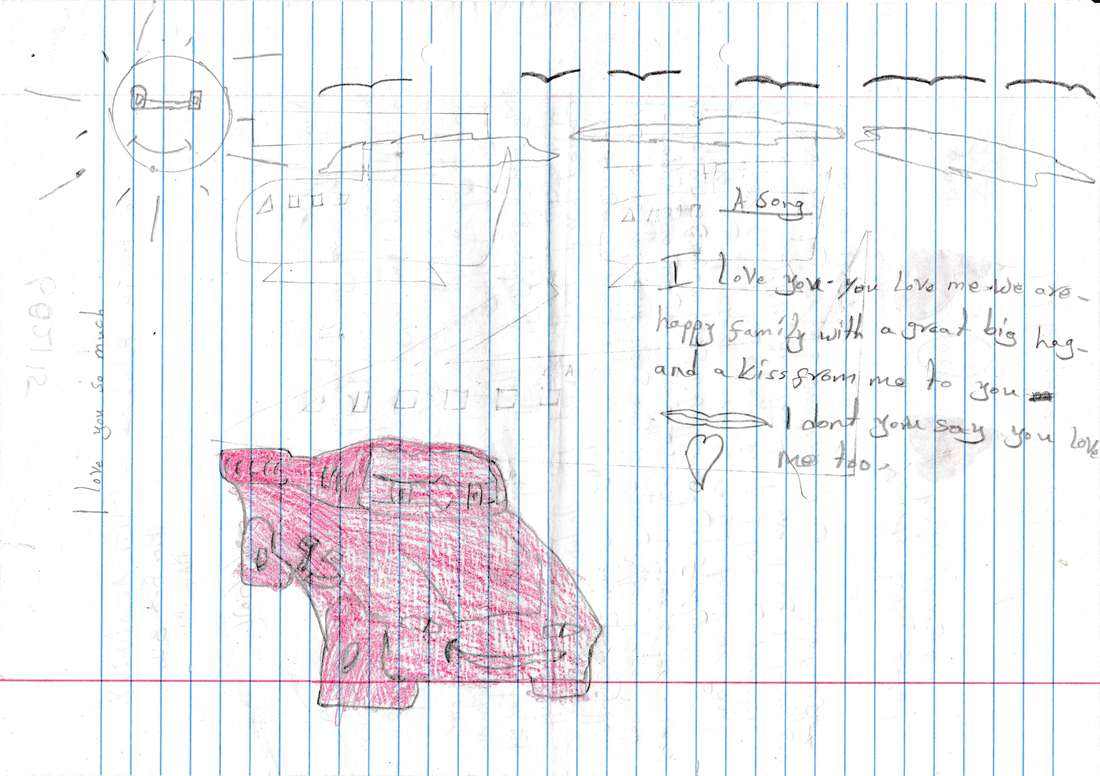 A Song
I love you. you love me. we are-
happy family with a great big hag-
and a kiss from me to you
I dont you say you love
me too.
I love you so much